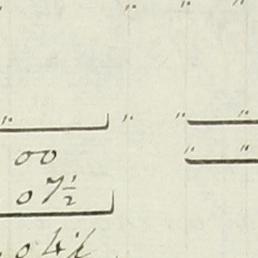 " " "
" " " "
00 " "
0 7½
0 4½